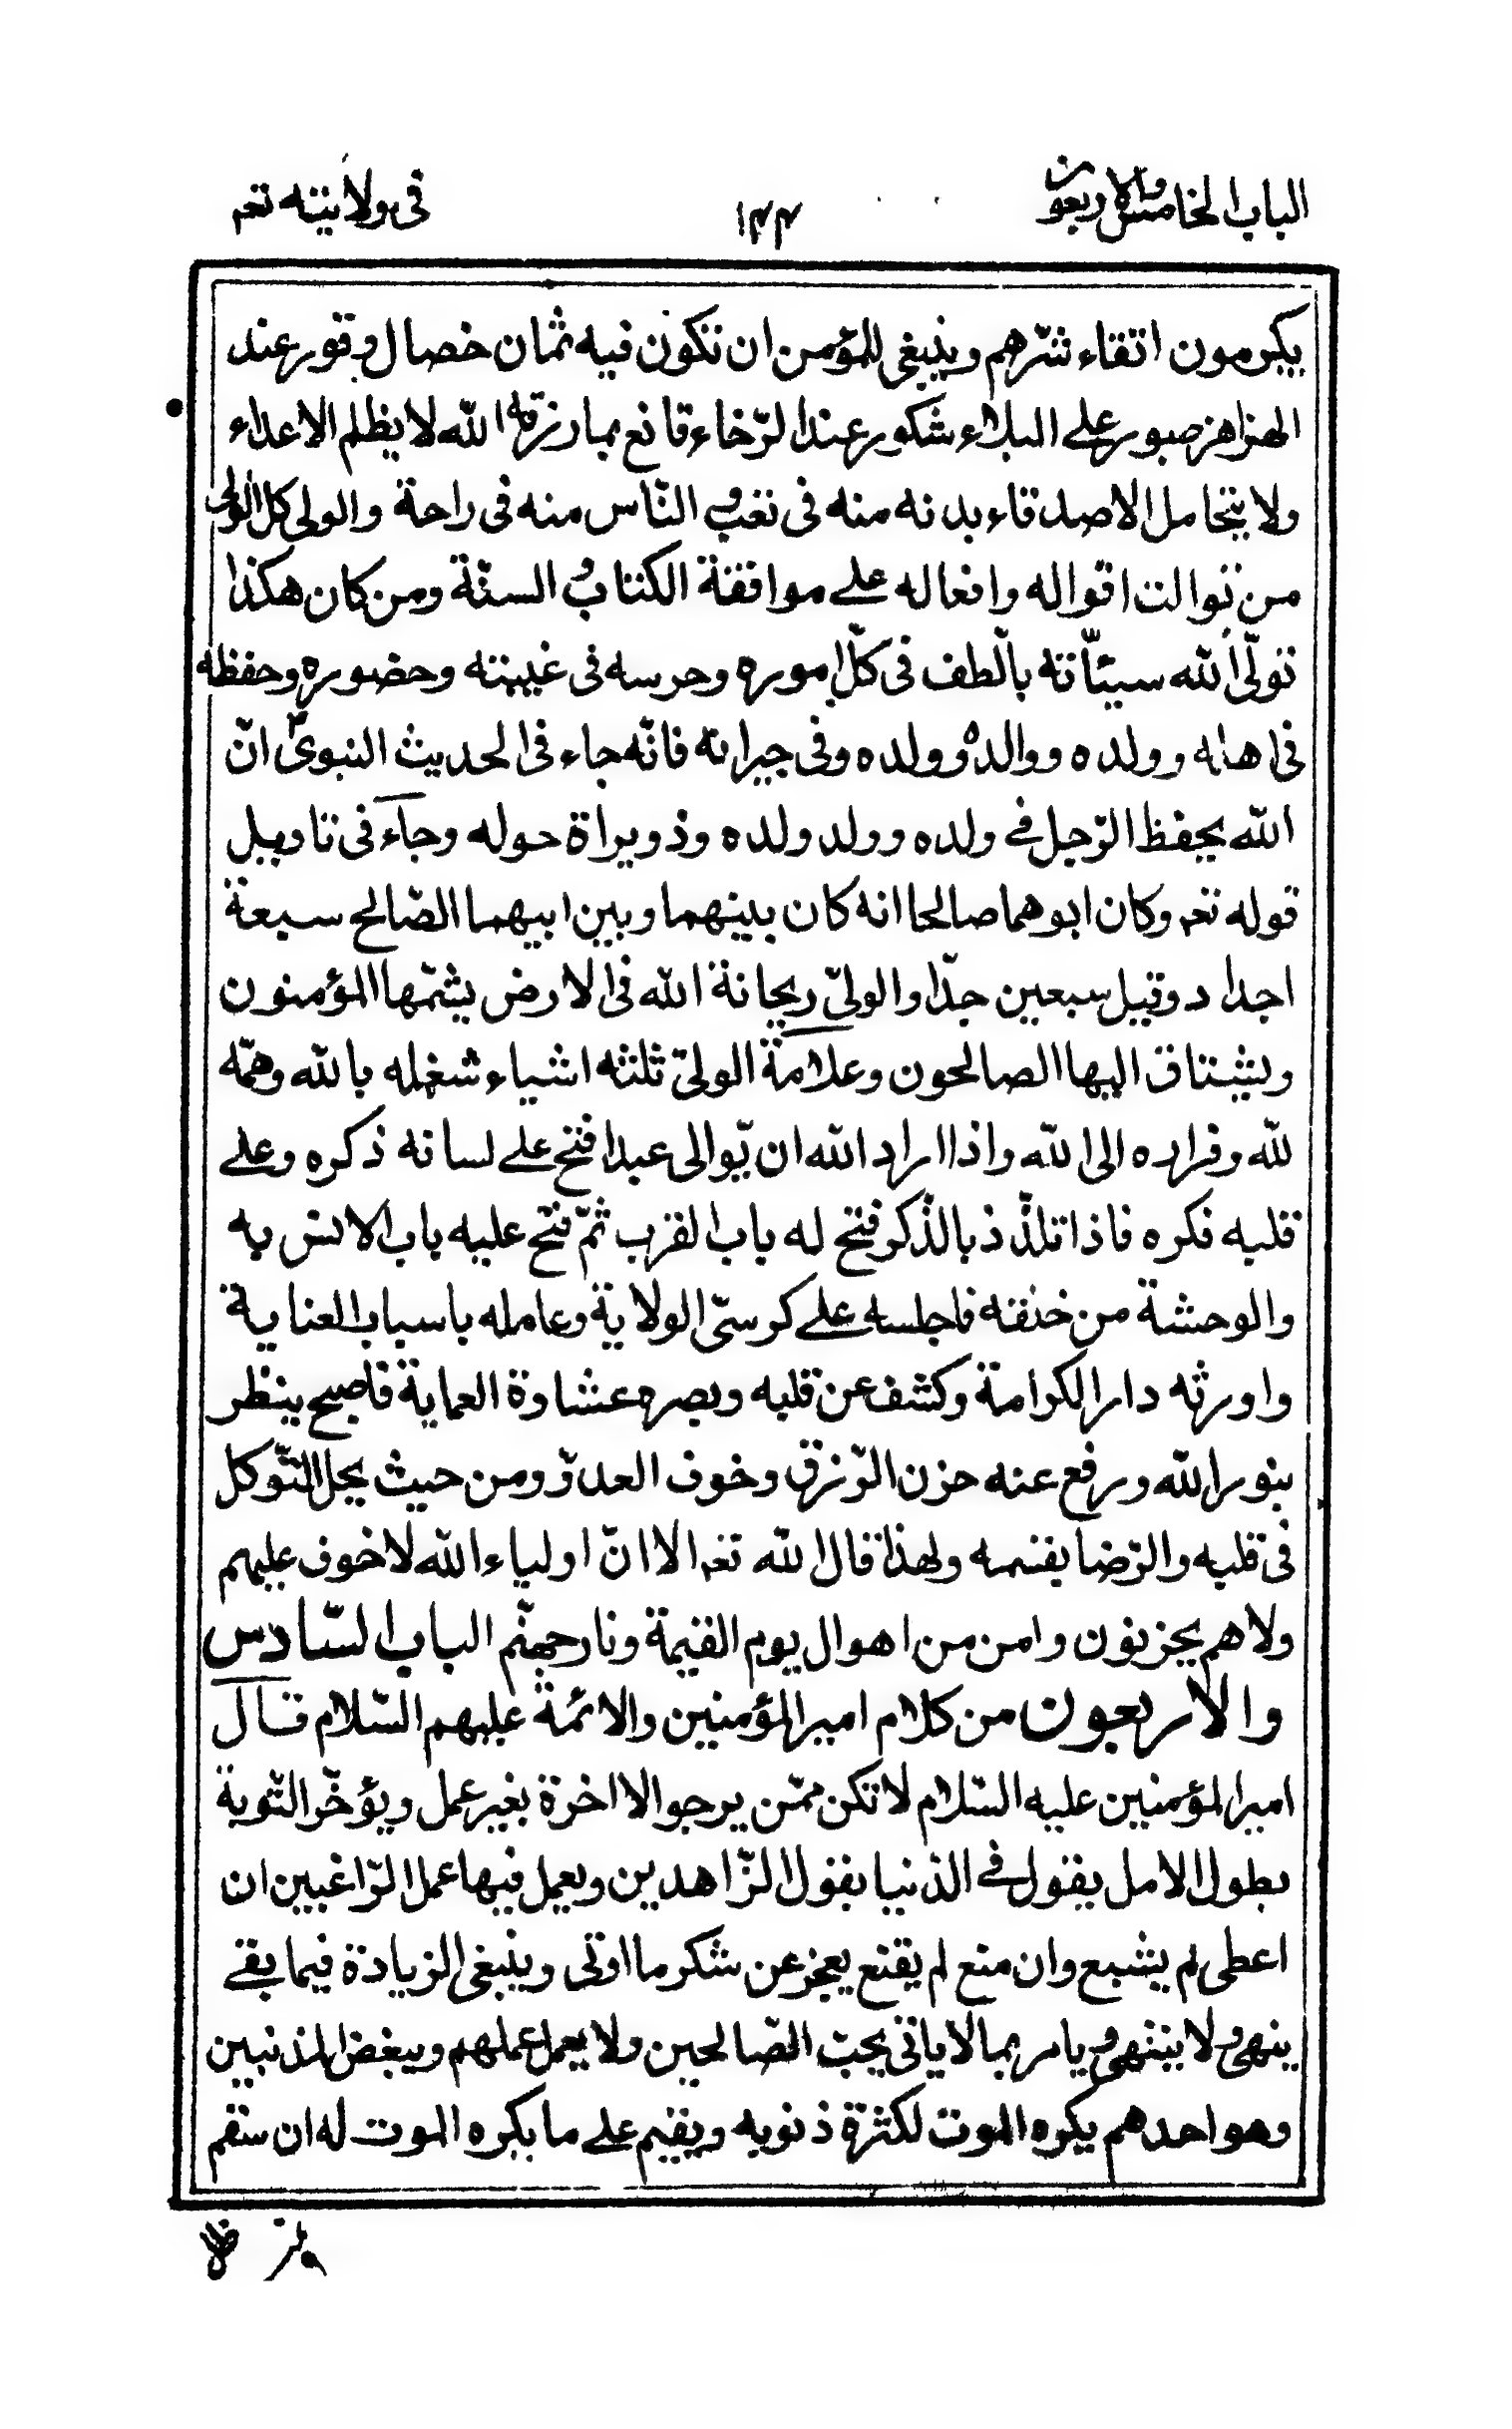 الباب الخامس والاربعون
١٤٤
فى ولايته تعم
يكرمون اتقاء شرّهم وينبغى للمؤمن ان تكون فيه ثمان خصال وقور عند
الهزاهز صبور على البلاء شكور عند الرّخاء قانع بما رزقه الله لا يظلم الاعداء
ولا يتحامل الاصدقاء بدنه منه فى تعب و النّاس منه فى راحة والولى كل الولى
من توالت اقواله وافعاله على موافقة الكتاب و السنّة ومن كان هكذا
تولّى الله سيئاته بالّطف فى كلّ اموره وحرسه فى غيبته وحضوره وحفظه
فى اهله وولده ووالده وولده وفى جيرانه فانّه جاء فى الحديث النبوىّ انّ
الله يحفظ الرّجل فى ولده وولد ولده وذويراة حوله وجاء فى تاويل
قوله تعم وكان ابوهما صالحا انه كان بينهما وبين ابيهما الصّالح سبعة
اجداد وقيل سبعين جدّا والولىّ ريحانة الله فى الارض يشمّها المؤمنون
ويشتاق اليها الصالحون وعلامة الولىّ ثلثه اشياء شغله بالله وهمّه
للّه وفراره الى الله واذا اراد الله ان يّوالى عبدا فتح على لسانه ذكره وعلى
قلبه فكره فاذا تلذّذ بالذّكر فتح له باب القرب ثمّ فتح عليه باب الانس به
والوحشة من خلقه فاجلسه على كرسىّ الولاية وعامله باسباب العناية
واورثه دار الكرامة وكشف عن قلبه وبصره غشاوة العماية فاصبح ينظر
بنور الله ورفع عنه حزن الرّزق وخوف العدوّ ومن حيث يحل التّوكل
فى قلبه والرّضا بقسمه ولهذا قال الله تعم الا انّ اولياء الله لا خوف عليهم
ولا هم يحزنون وامن من اهوال يوم القيمة ونار جهنّم الباب السّادس
والاربعون من كلام امير المؤمنين والائمّة عليهم السّلام قال
امير المؤمنين عليه السّلام لا تكن ممّن يرجوا الاخرة بغير عمل ويؤخّر التّوبة
بطول الامل يقول فى الدّنيا بقول الزّاهدين ويعمل فيها عمل الرّاغبين ان
اعطى لم يشبع وان منع لم يقنع يعجز عن شكر ما اوتى وينبغى الزيادة فيما بقى
ينهى و لا ينتهى و يامر بما لا ياتى يحبّ الصّالحين ولا يعمل عملهم ويبغض المذنبين
وهو احدهم يكره الموت لكثرة ذنوبه ويقيم على ما يكره الموت له ان سقم